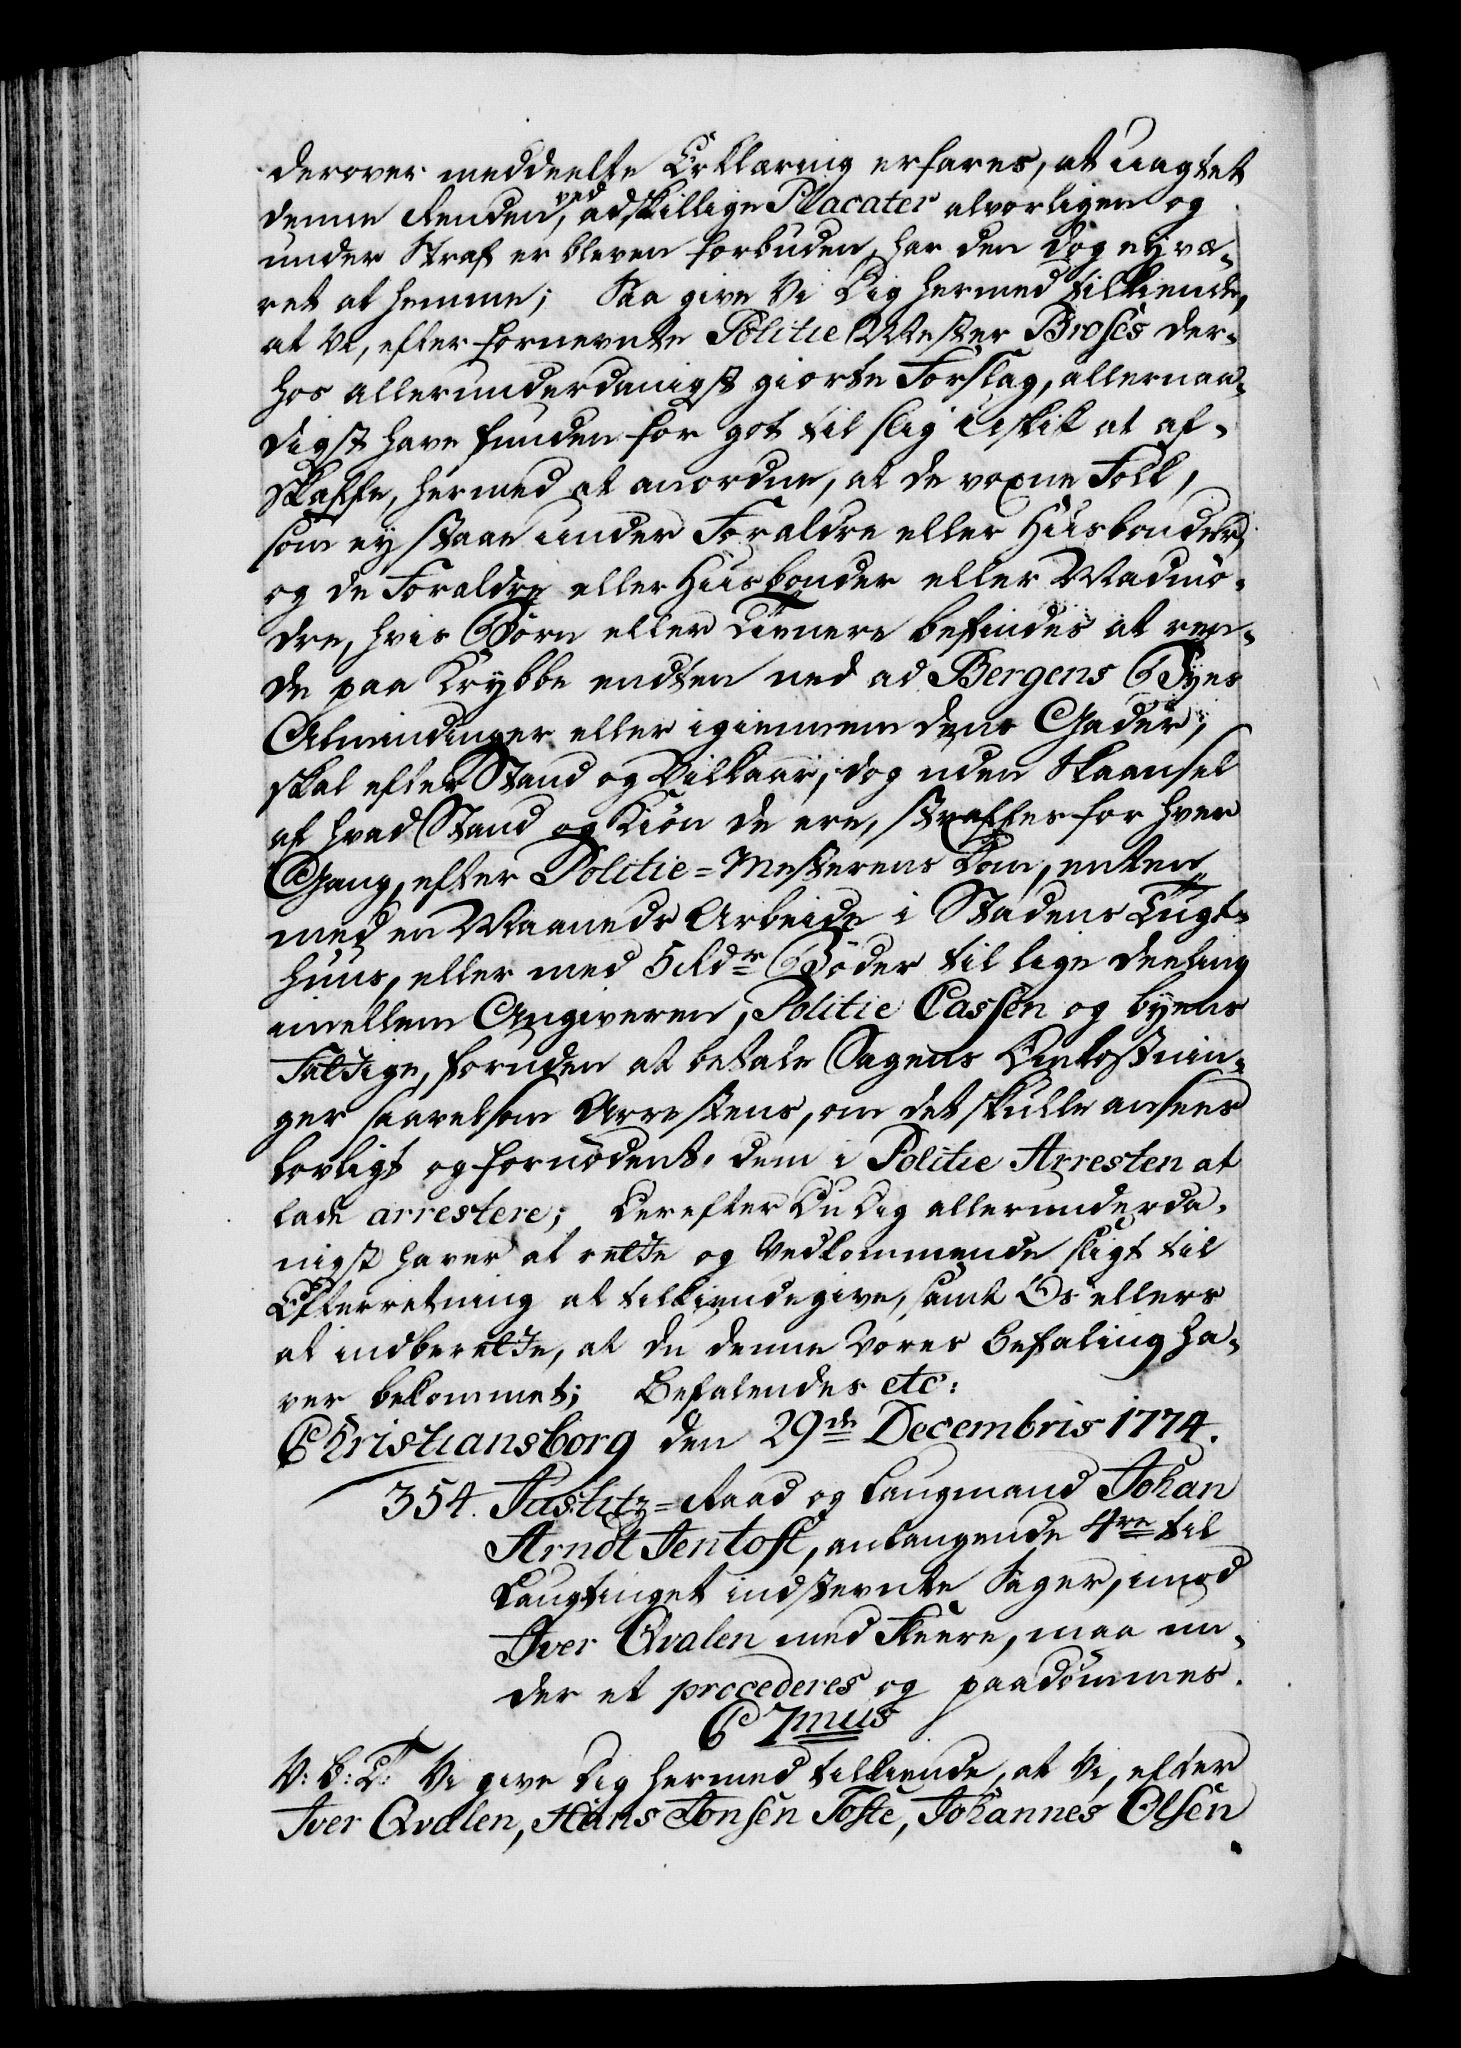 derover meddeelte Erklæring erfares, at uagtet
denne Renden, ved adskillige Placater alvorligen og
under Straf er bleven forbuden, har den dog ey væ-
ret at hemme; Saa give Vi Dig hermed tilkiende,
at Vi, efter fornevnte Politie Mester Broses der-
hos allerunderdanigst giorte Forslag, allernaa-
digst have funden for got til slig Uskik at af-
skaffe, hermed at anordne, at de voxne Folk,
som ey staae under Forældre eller Huusbonder,
og de Forældre eller Huusbonder eller Madmø-
dre, hvis Børn eller Tienere befindes at ren-
de paa Krybbe endten ned ad Bergens Byes
Almindinger eller igiennem dens Gader,
skal efter Stand og Vilkaar, dog uden Skaansel
af hvad Stand og Kiøn de ere, straffes for hver
Gang, efter Politie-Mesterens Dom, enten
med en Maaneds Arbeide i Stadens Tugt-
huus, eller med 5 Rdr Bøder til lige deeling
imellem Angiveren, Politie Cassen og byens
Fattige, foruden at betale Sagens Omkostnin-
ger saavelsom Arrestens, om det skulle ansees
lovligt og fornødent, dem i Politie Arresten at
lade arrestere; Derefter Du Dig allerunderda-
nigst haver at rette og Vedkommende sligt til
Efterretning at tilkiendegive, samt Os ellers
at indberette, at du denne Vores Befaling ha-
ver bekommet; Befalendes etc:
Christiansborg den 29de Decembris 1774.
354. Justitz-Raad og Laugmand Johan
Arndt Jentoft, anlangende 4re til
Laugtinget indstevnte Sager, imod
Iver Qvalen med Fleere, maa un-
der et procederes og paadømmes.
C 7mus
V: G: T: Vi give Dig hermed tilkiende, at Vi, efter
Iver Qvalen, Hans Jonsen Foste, Johannes Olsen